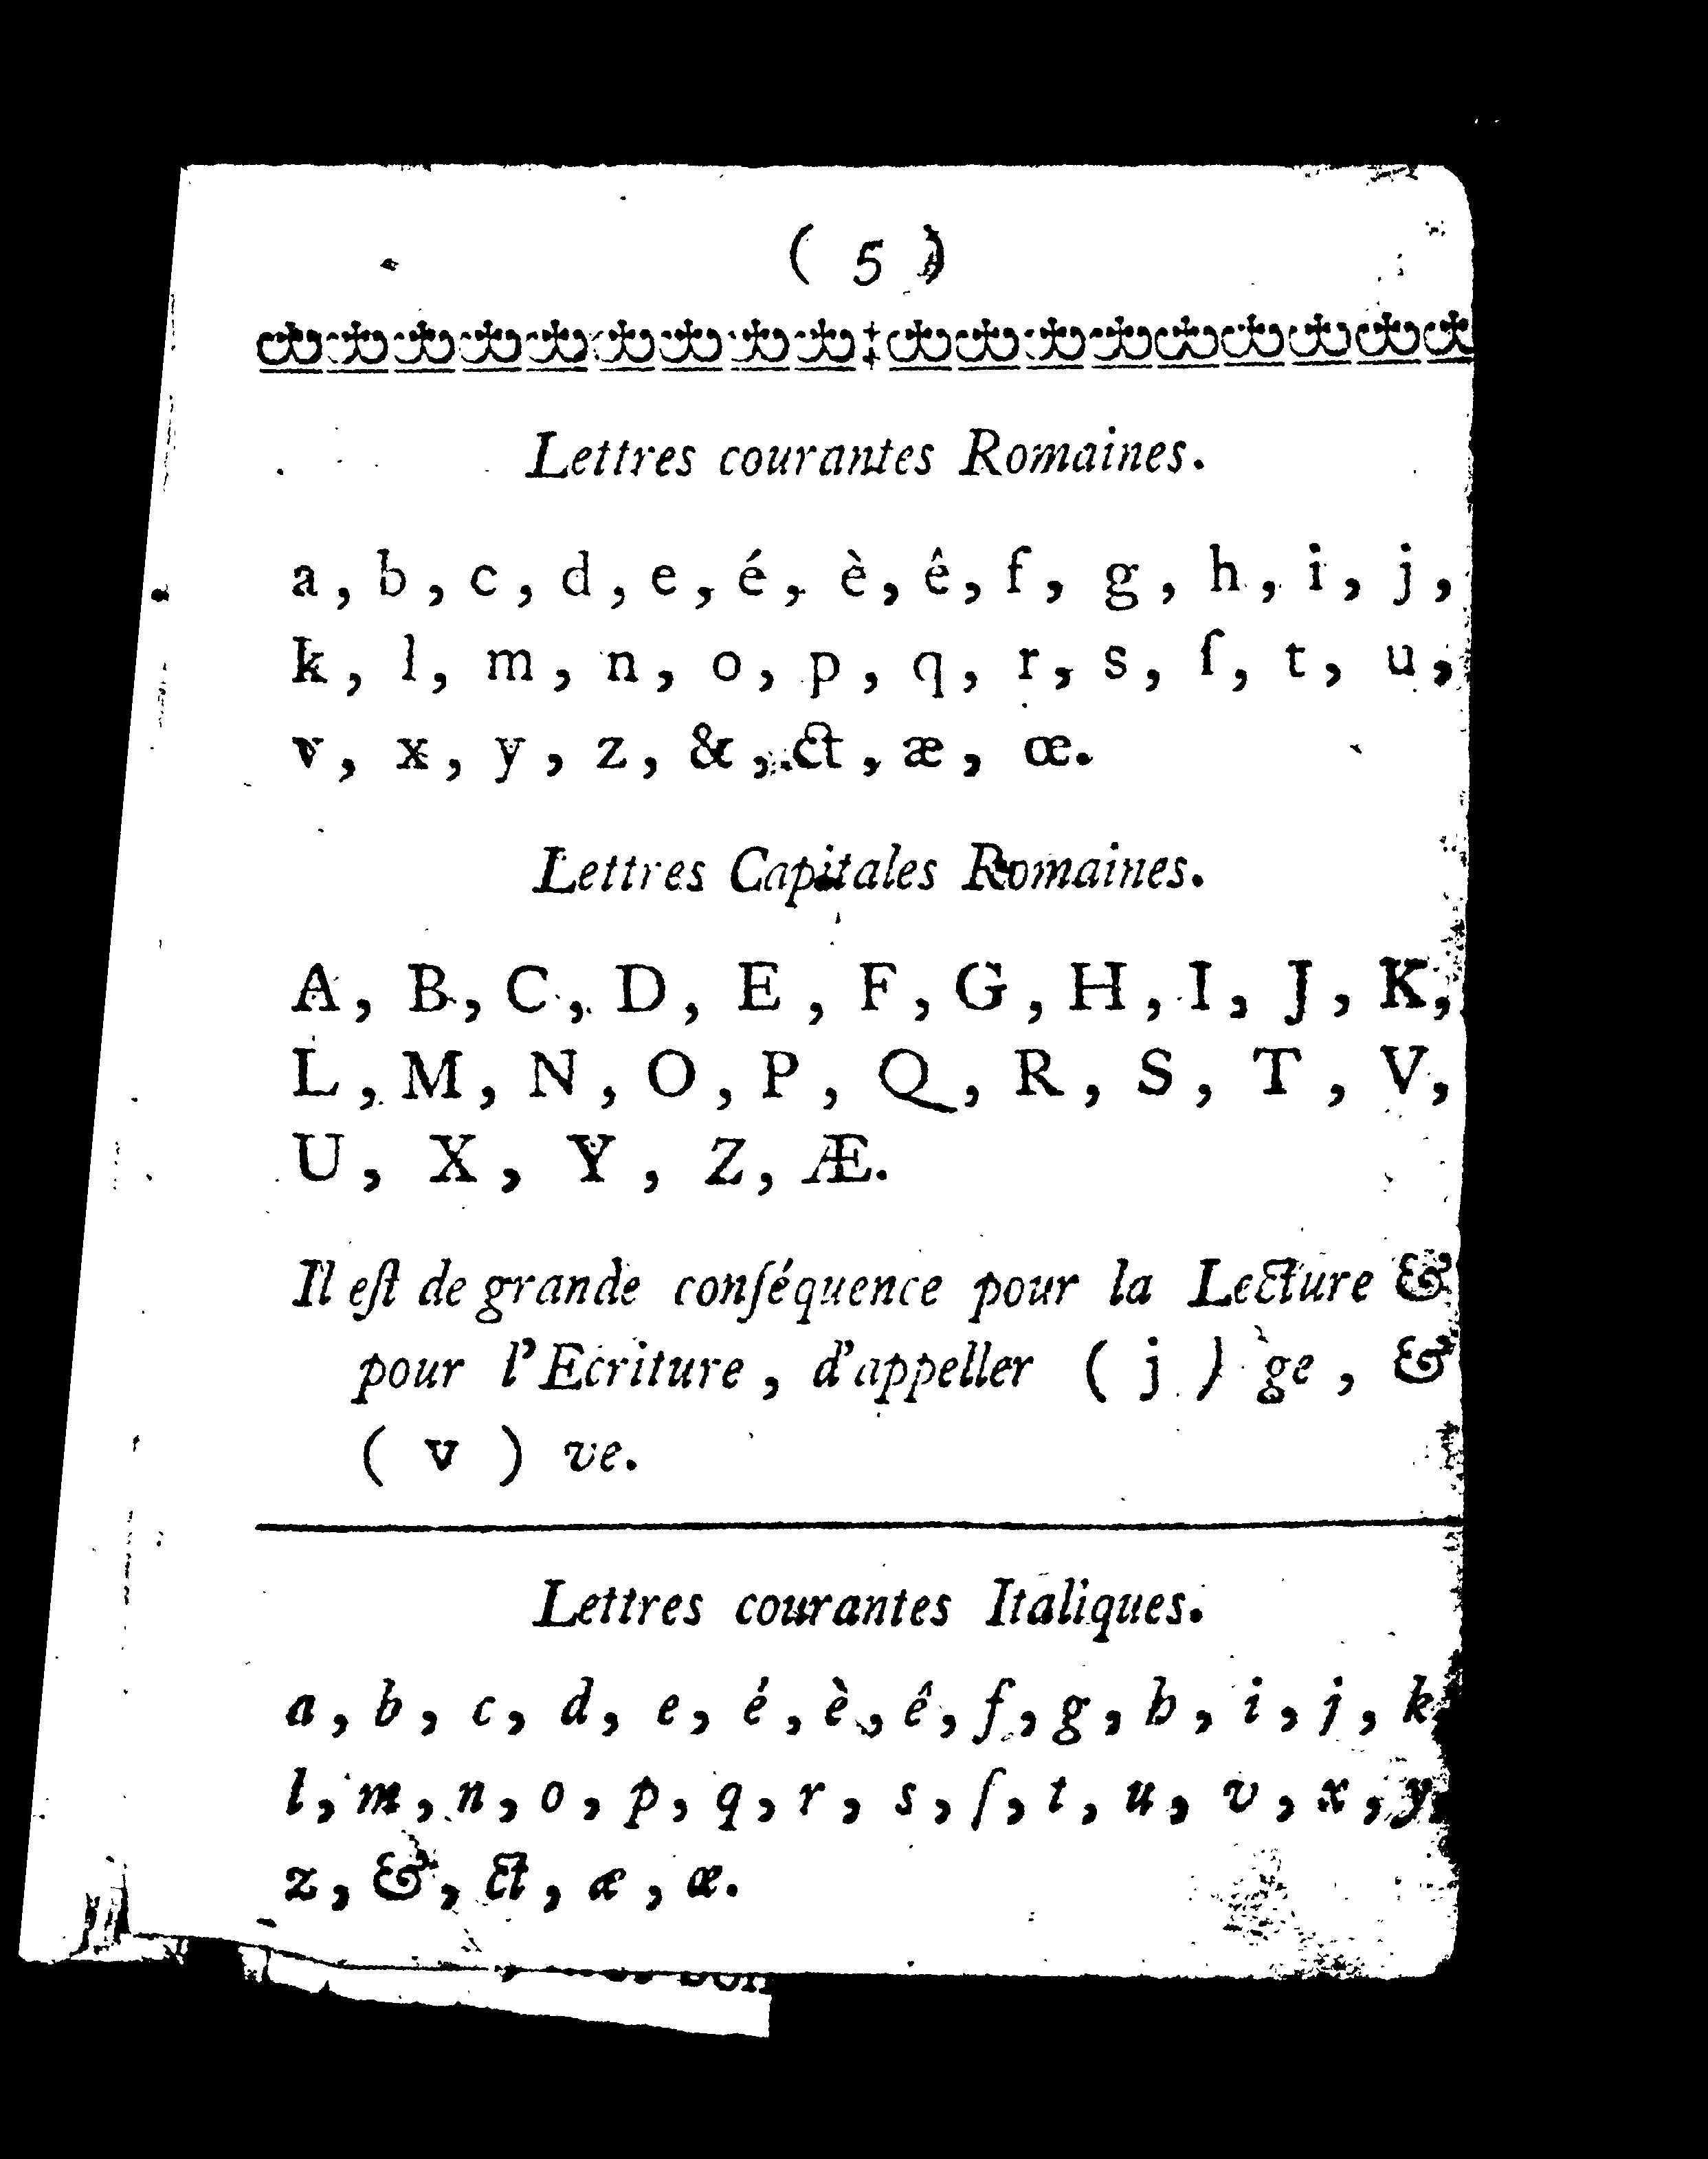 ( 5 )
Lettres courantes Romaines.
a, b, c, d, e, é, è, ê, f, g, h, i, j,
k, l, m, n, o, p, q, r, s, ſ, t, u,
v, x, y, z, &, ct, æ, œ.
Lettres Capitales Romaines.
A, B, C, D, E, F, G, H, I, J, K,
L, M, N, O, P, Q, R, S, T, V,
U, X, Y, Z, Æ.
Il eſt de grande conſéquence pour la Lecture &
pour l'Ecriture, d'appeller ( j ) ge, &
( v ) ve.
Lettres courantes Italiques.
a, b, c, d, e, é, è, ê, f, g, h, i, j, k,
l, m, n, o, p, q, r, s, ſ, t, u, v, x, y,
z, &, ct, æ, œ.